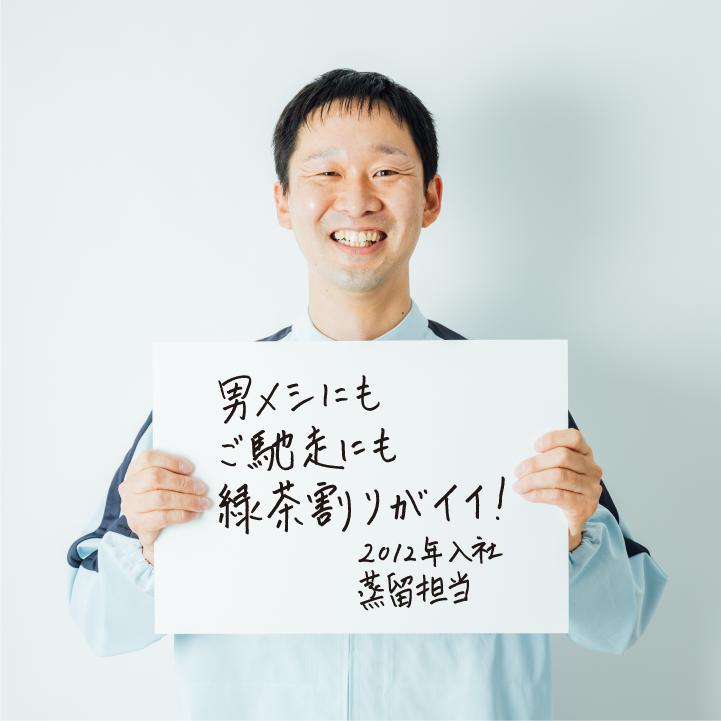 男メシにも
ご馳走にも
緑茶割りがイイ!
2012年入社
蒸留担当